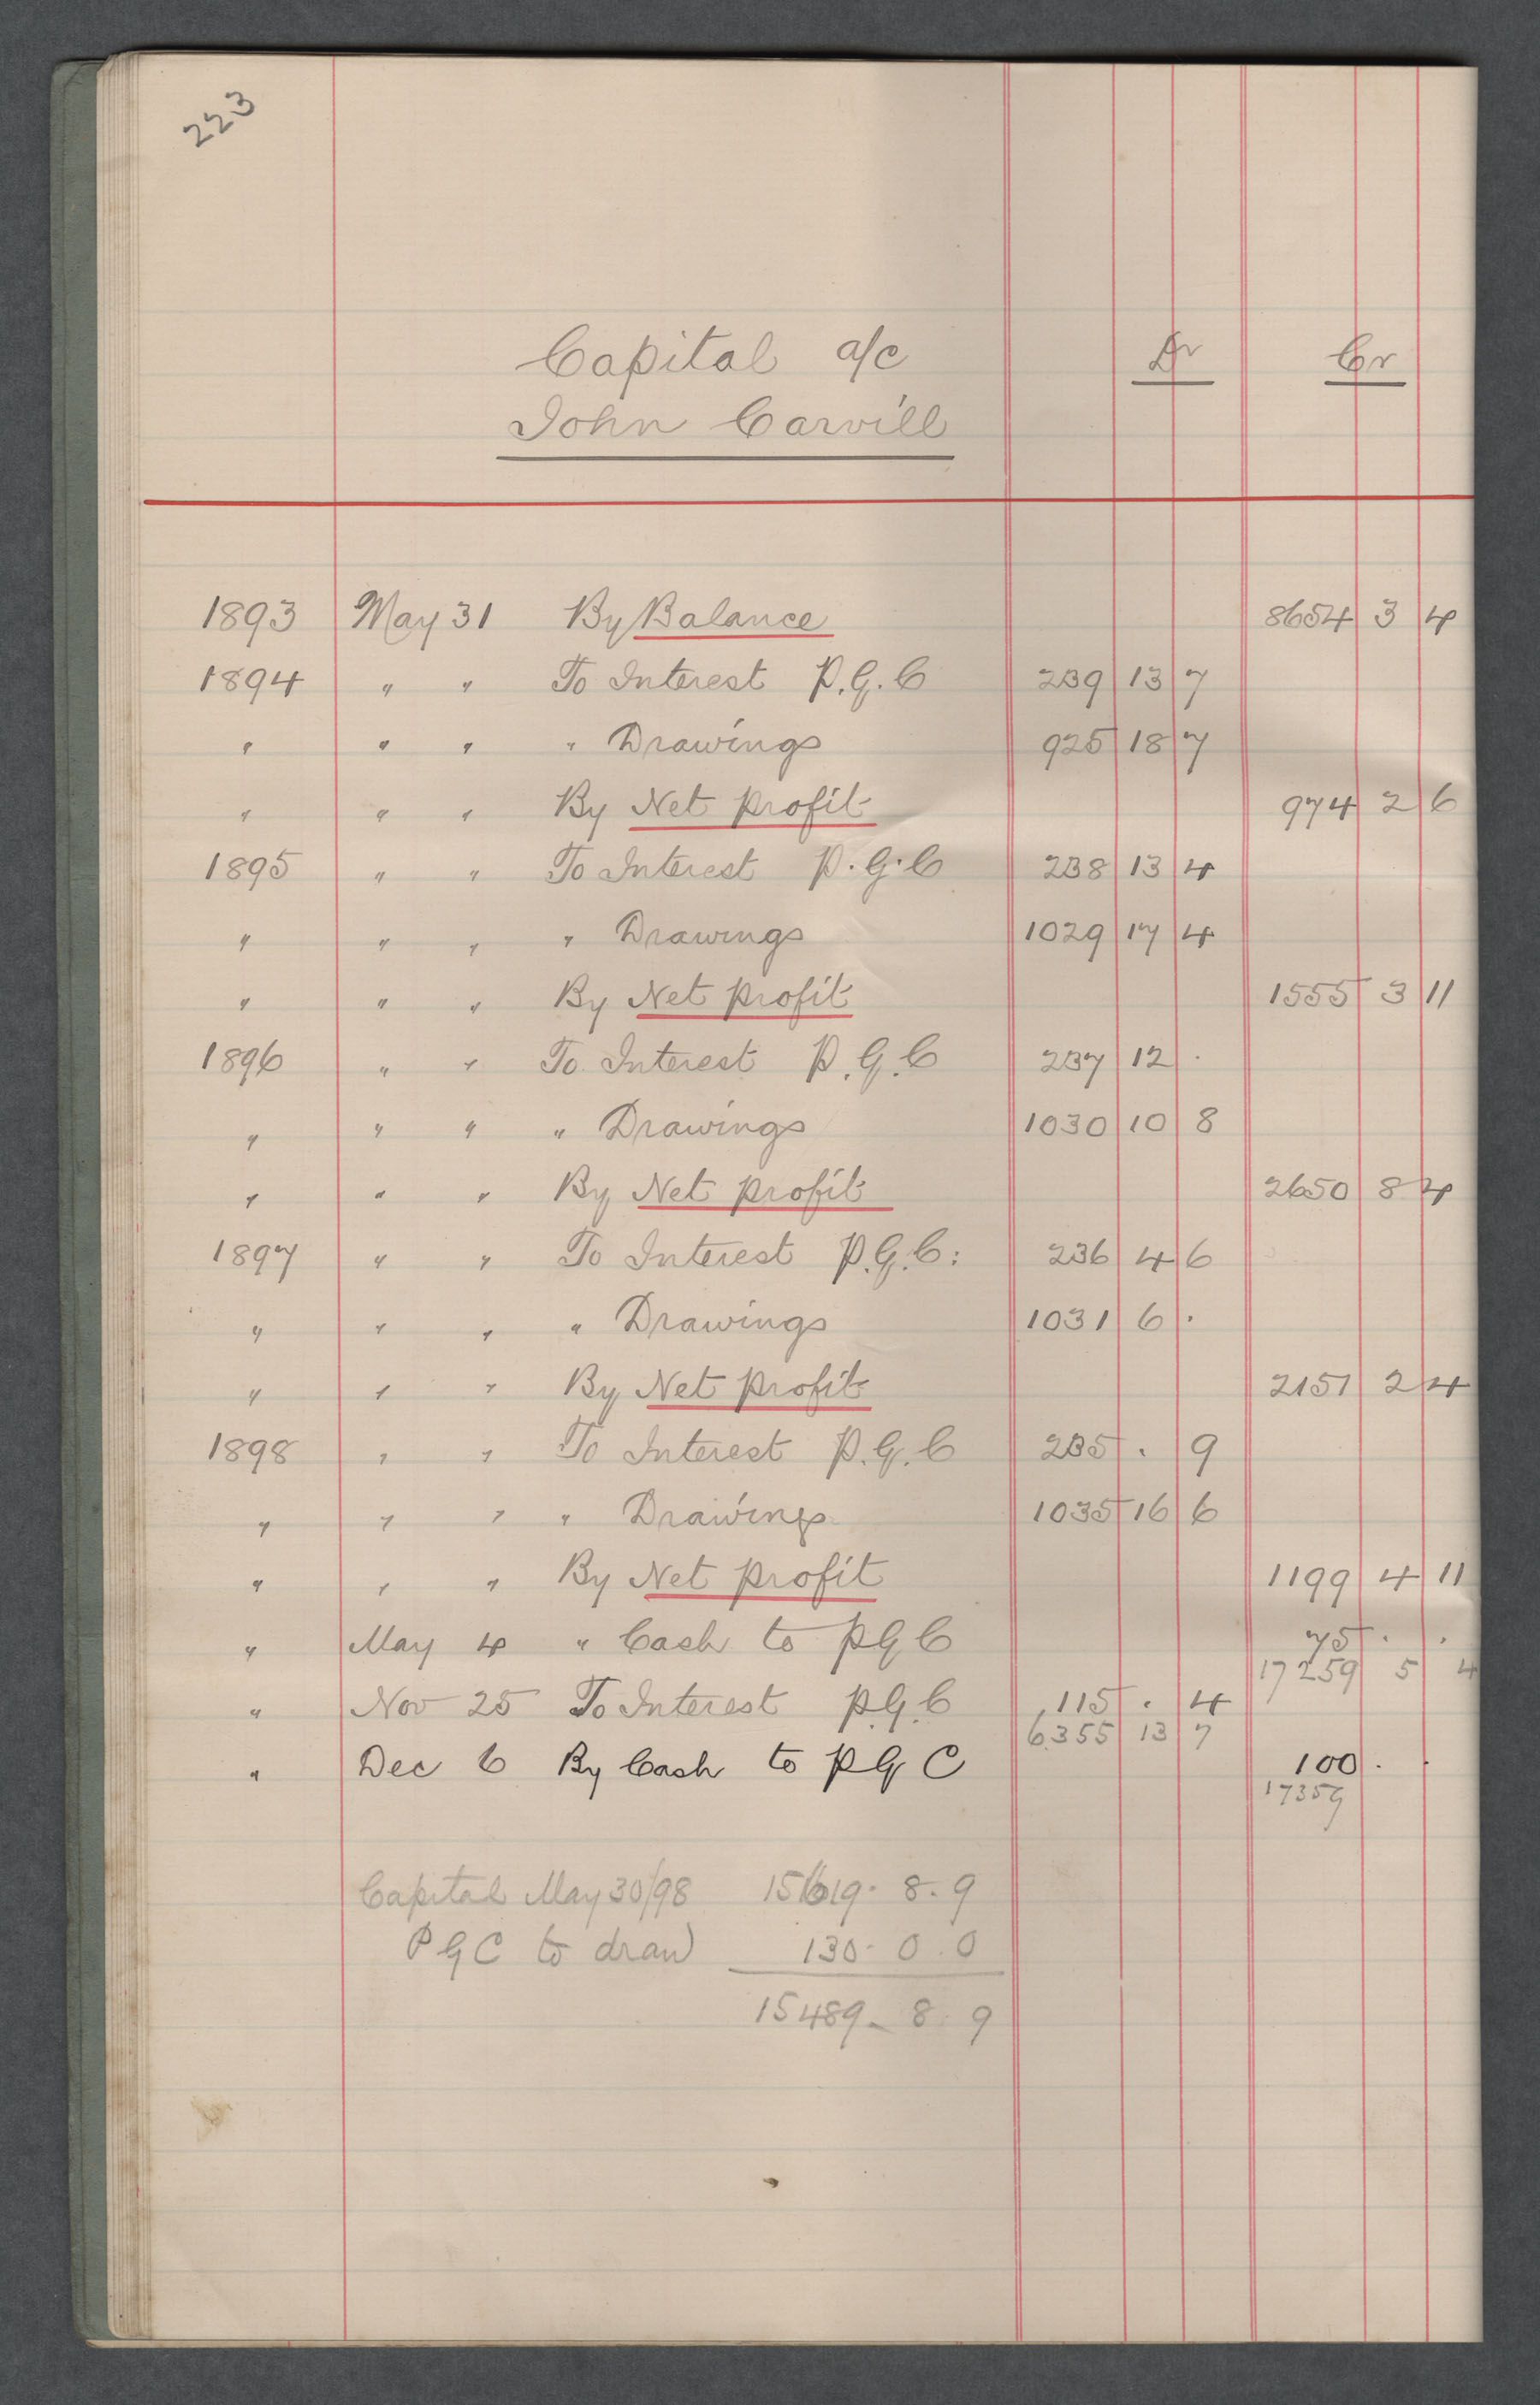 223
Capital a/c Dr Cr
John Carvill
1893 May 31 By Balance 8654 3 4
1894 " " To Interest P.G.C 239 13 7
" " " " Drawings 925 18 7
" " " By Net profit 974 2 6
1895 " " To Interest P.G.C 238 13 4
" " " " Drawings 1029 17 4
" " " By Net profit 1555 3 11
1896 " " To Interest P.G.C 237 12 .
" " " " Drawings 1030 10 8
" " " By Net profit 2650 8 4
1897 " " To Interest P.G.C: 236 4 6
" " " " Drawings 1031 6 .
" " " By Net profit 2151 2 4
1898 " " To Interest P.G.C 235 . 9
" " " " Drawings 1035 16 6
" " " By Net profit 1199 4 11
" May 4 " Cash to PGC 75 . .
17259 5 4
" Nov 25 To Interest P.G.C 115 . 4
6355 13 7
" Dec 6 By Cash to PGC 100 . .
17359
Capital May 30/98 15619. 8. 9
PGC to draw 130. 0. 0
15489_ 8. 9